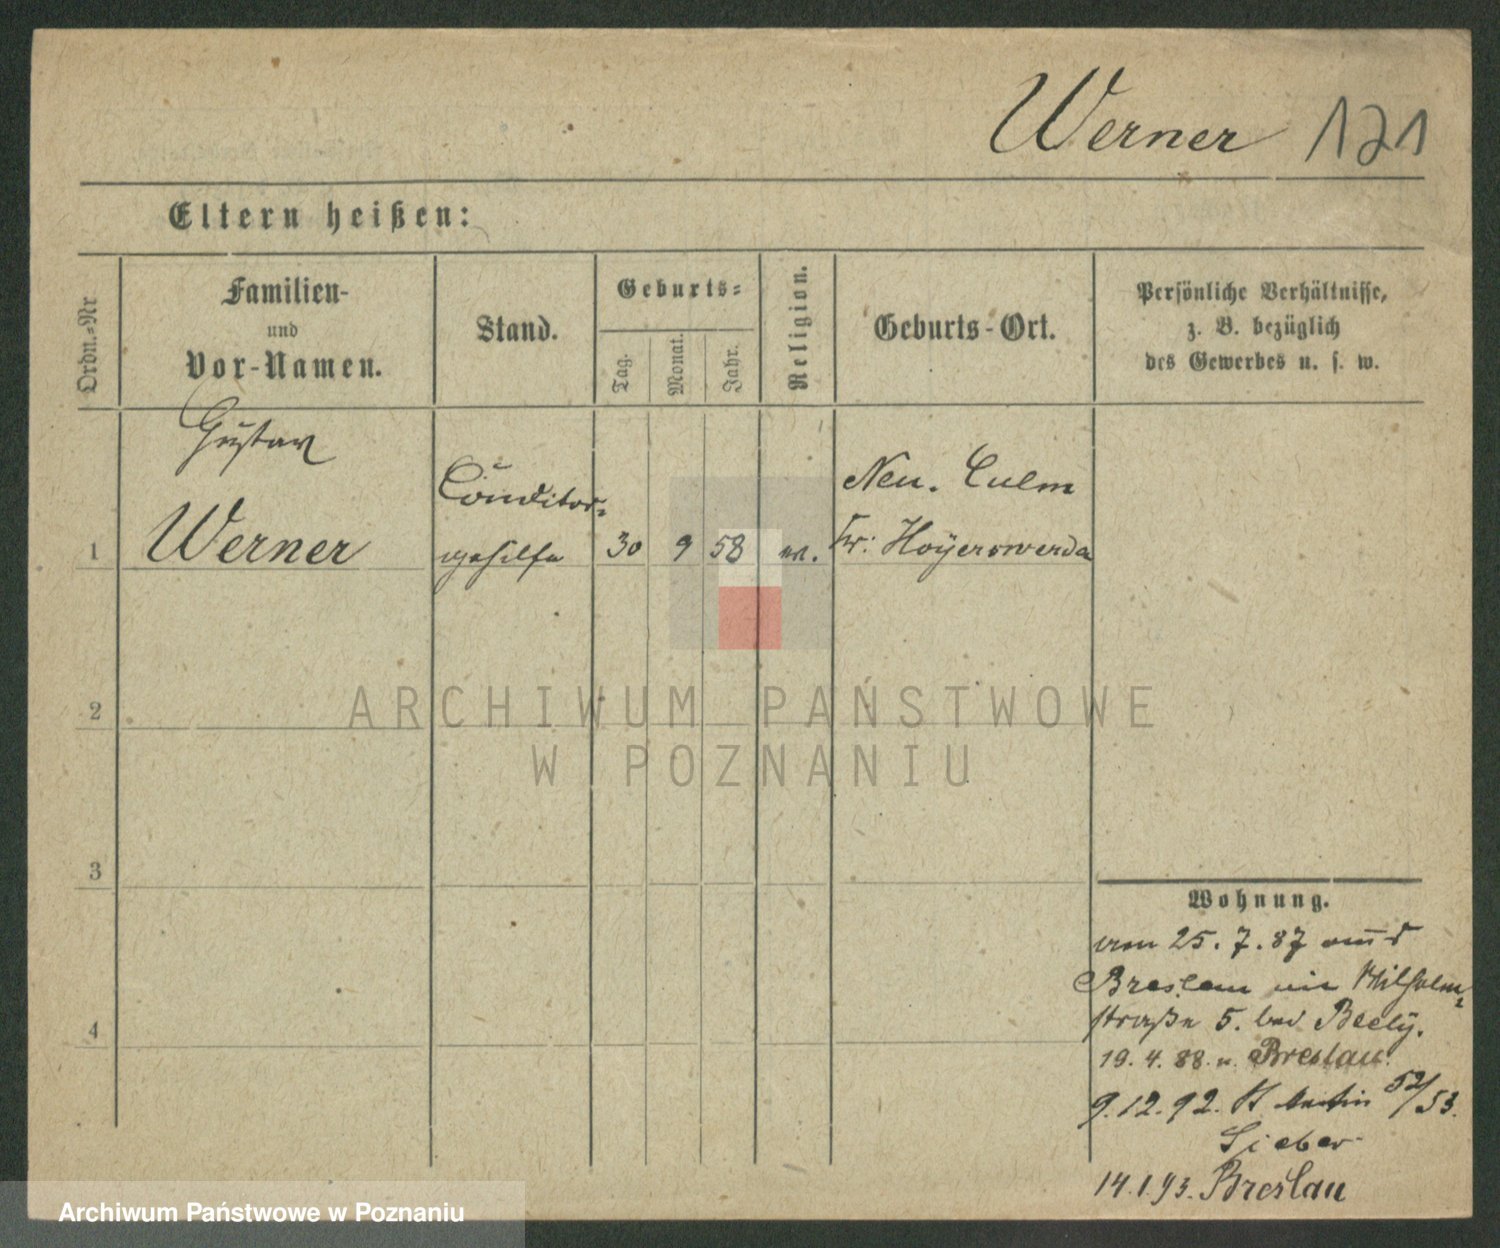 Werner 121
Eltern heißen:
Ordn.-Nr
Familien-
und
Vor-Namen.
Stand.
Geburts-
Tag.
Monat.
Jahr.
Religion.
Geburts-Ort.
Persönliche Verhältnisse,
z. B. bezüglich
des Gewerbes u. s. w.
Gustav
Werner
Conditor-
gehilfe
1
30 9 58 ev.
Neu. Culm
Kr: Hoyerswerda
2
3
4
Wohnung.
von 25. 7. 87 aus
Breslau Wilhelm-
straße 5. bei Beely.
19. 4. 88. n. Breslau.
9.12.92. St Martin 52/53.
Sieber
14.1.93. Breslau
ARCHIWUM PAŃSTWOWE
W POZNANIU
Archiwum Państwowe w Poznaniu